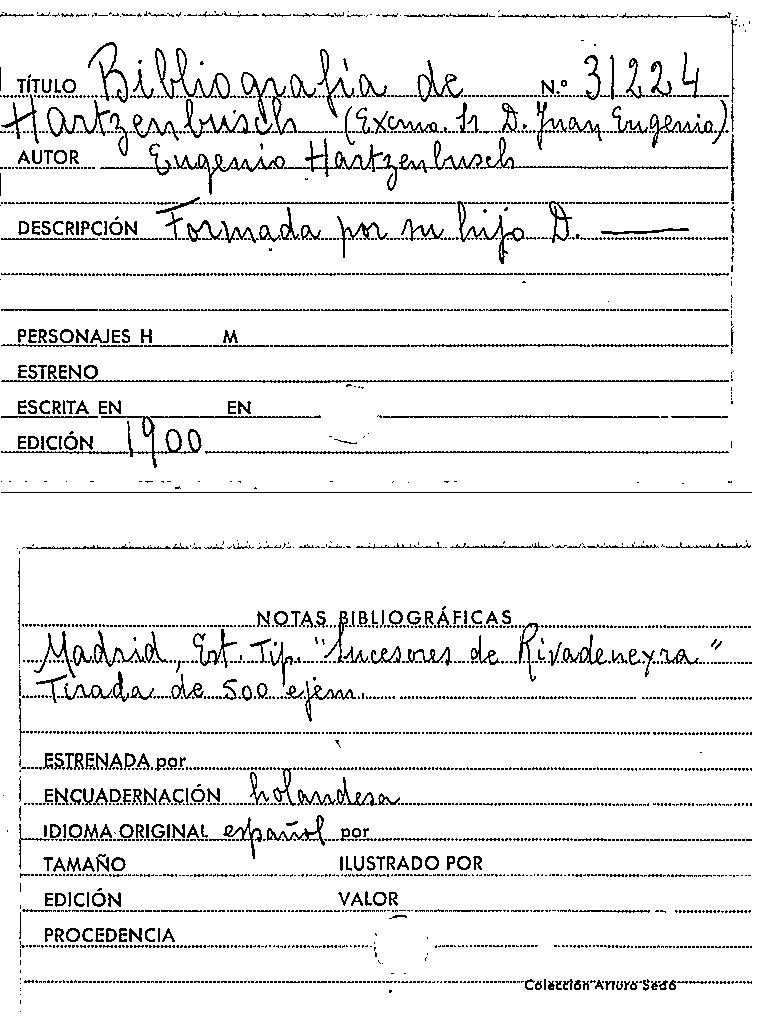 TÍTULO Bibliografía de N.º 31224
Hartzenbusch (Excmo. Sr D. Juan Eugenio)
AUTOR Eugenio Hartzenbusch
DESCRIPCIÓN Formada por su hijo D. ———
PERSONAJES H M
ESTRENO
ESCRITA EN EN
EDICIÓN 1900
NOTAS BIBLIOGRÁFICAS
Madrid, Est. Tip. "Sucesores de Rivadeneyra"
Tirada de 500 ejem.
ESTRENADA por
ENCUADERNACIÓN holandesa
IDIOMA ORIGINAL español por
TAMAÑO ILUSTRADO POR
EDICIÓN VALOR
PROCEDENCIA
Colección Arturo Sedó